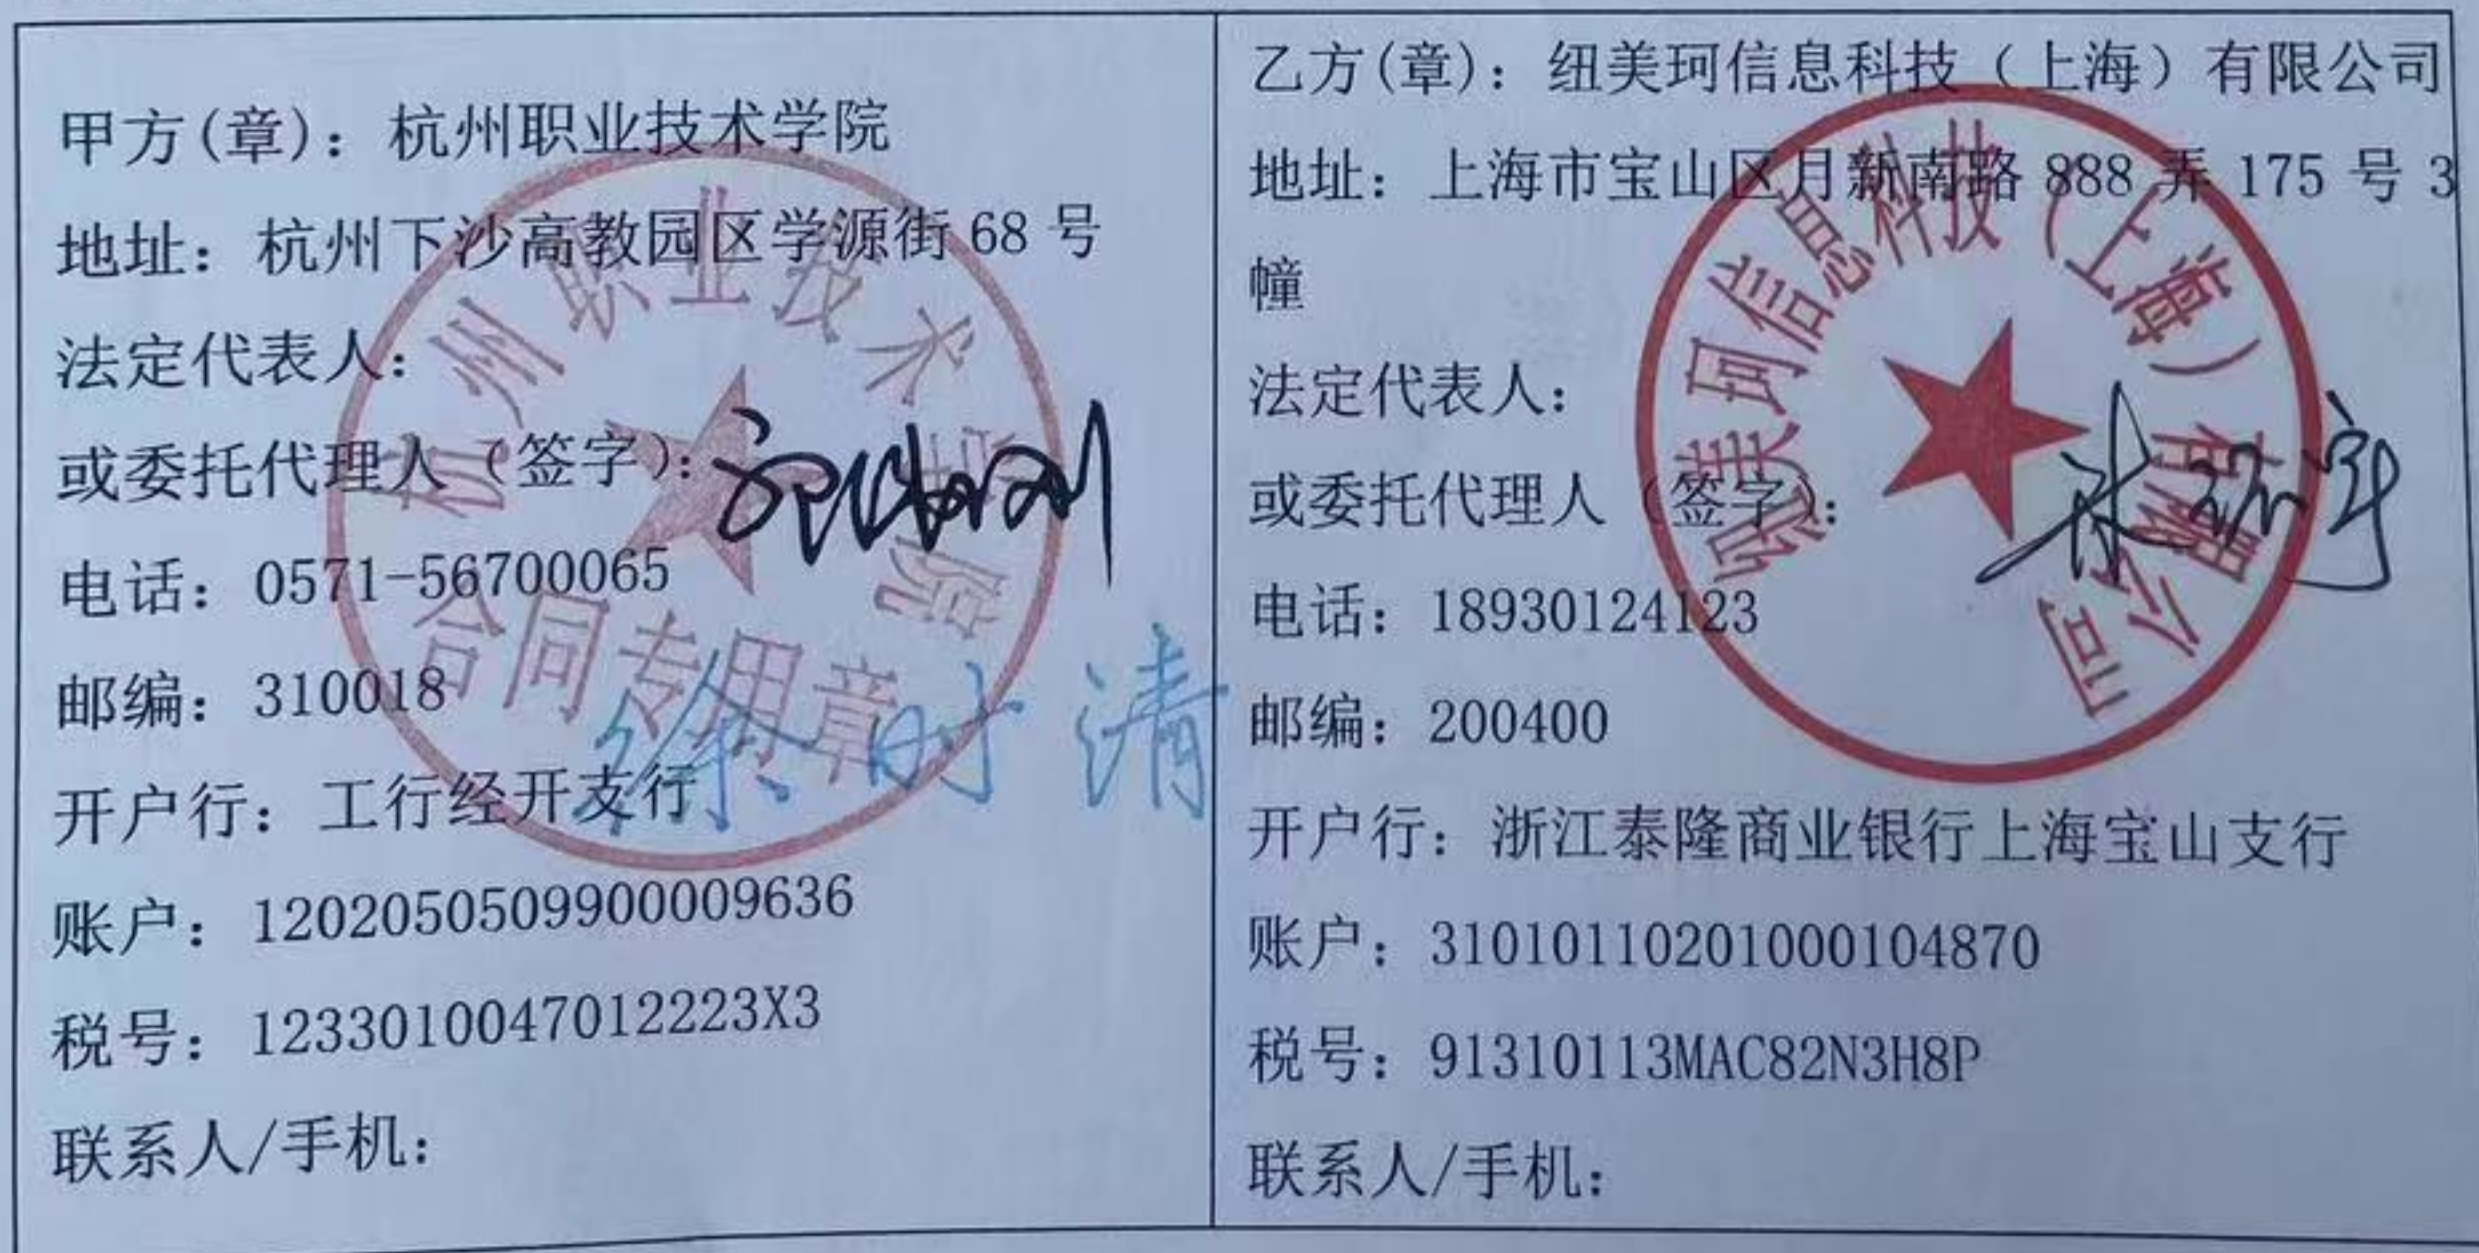 甲方(章)：杭州职业技术学院
地址：杭州下沙高教园区学源街 68 号
法定代表人：
或委托代理人（签字）：
电话：0571-56700065
邮编：310018
开户行：工行经开支行
账户：1202050509900009636
税号：1233010047012223X3
联系人/手机：
杭州职业技术学院
合同专用章
徐时清
乙方(章)：纽美珂信息科技（上海）有限公司
地址：上海市宝山区月新南路 888 弄 175 号 3
幢
法定代表人：
或委托代理人（签字）：
电话：18930124123
邮编：200400
开户行：浙江泰隆商业银行上海宝山支行
账户：31010110201000104870
税号：91310113MAC82N3H8P
联系人/手机：
纽美珂信息科技（上海）有限公司